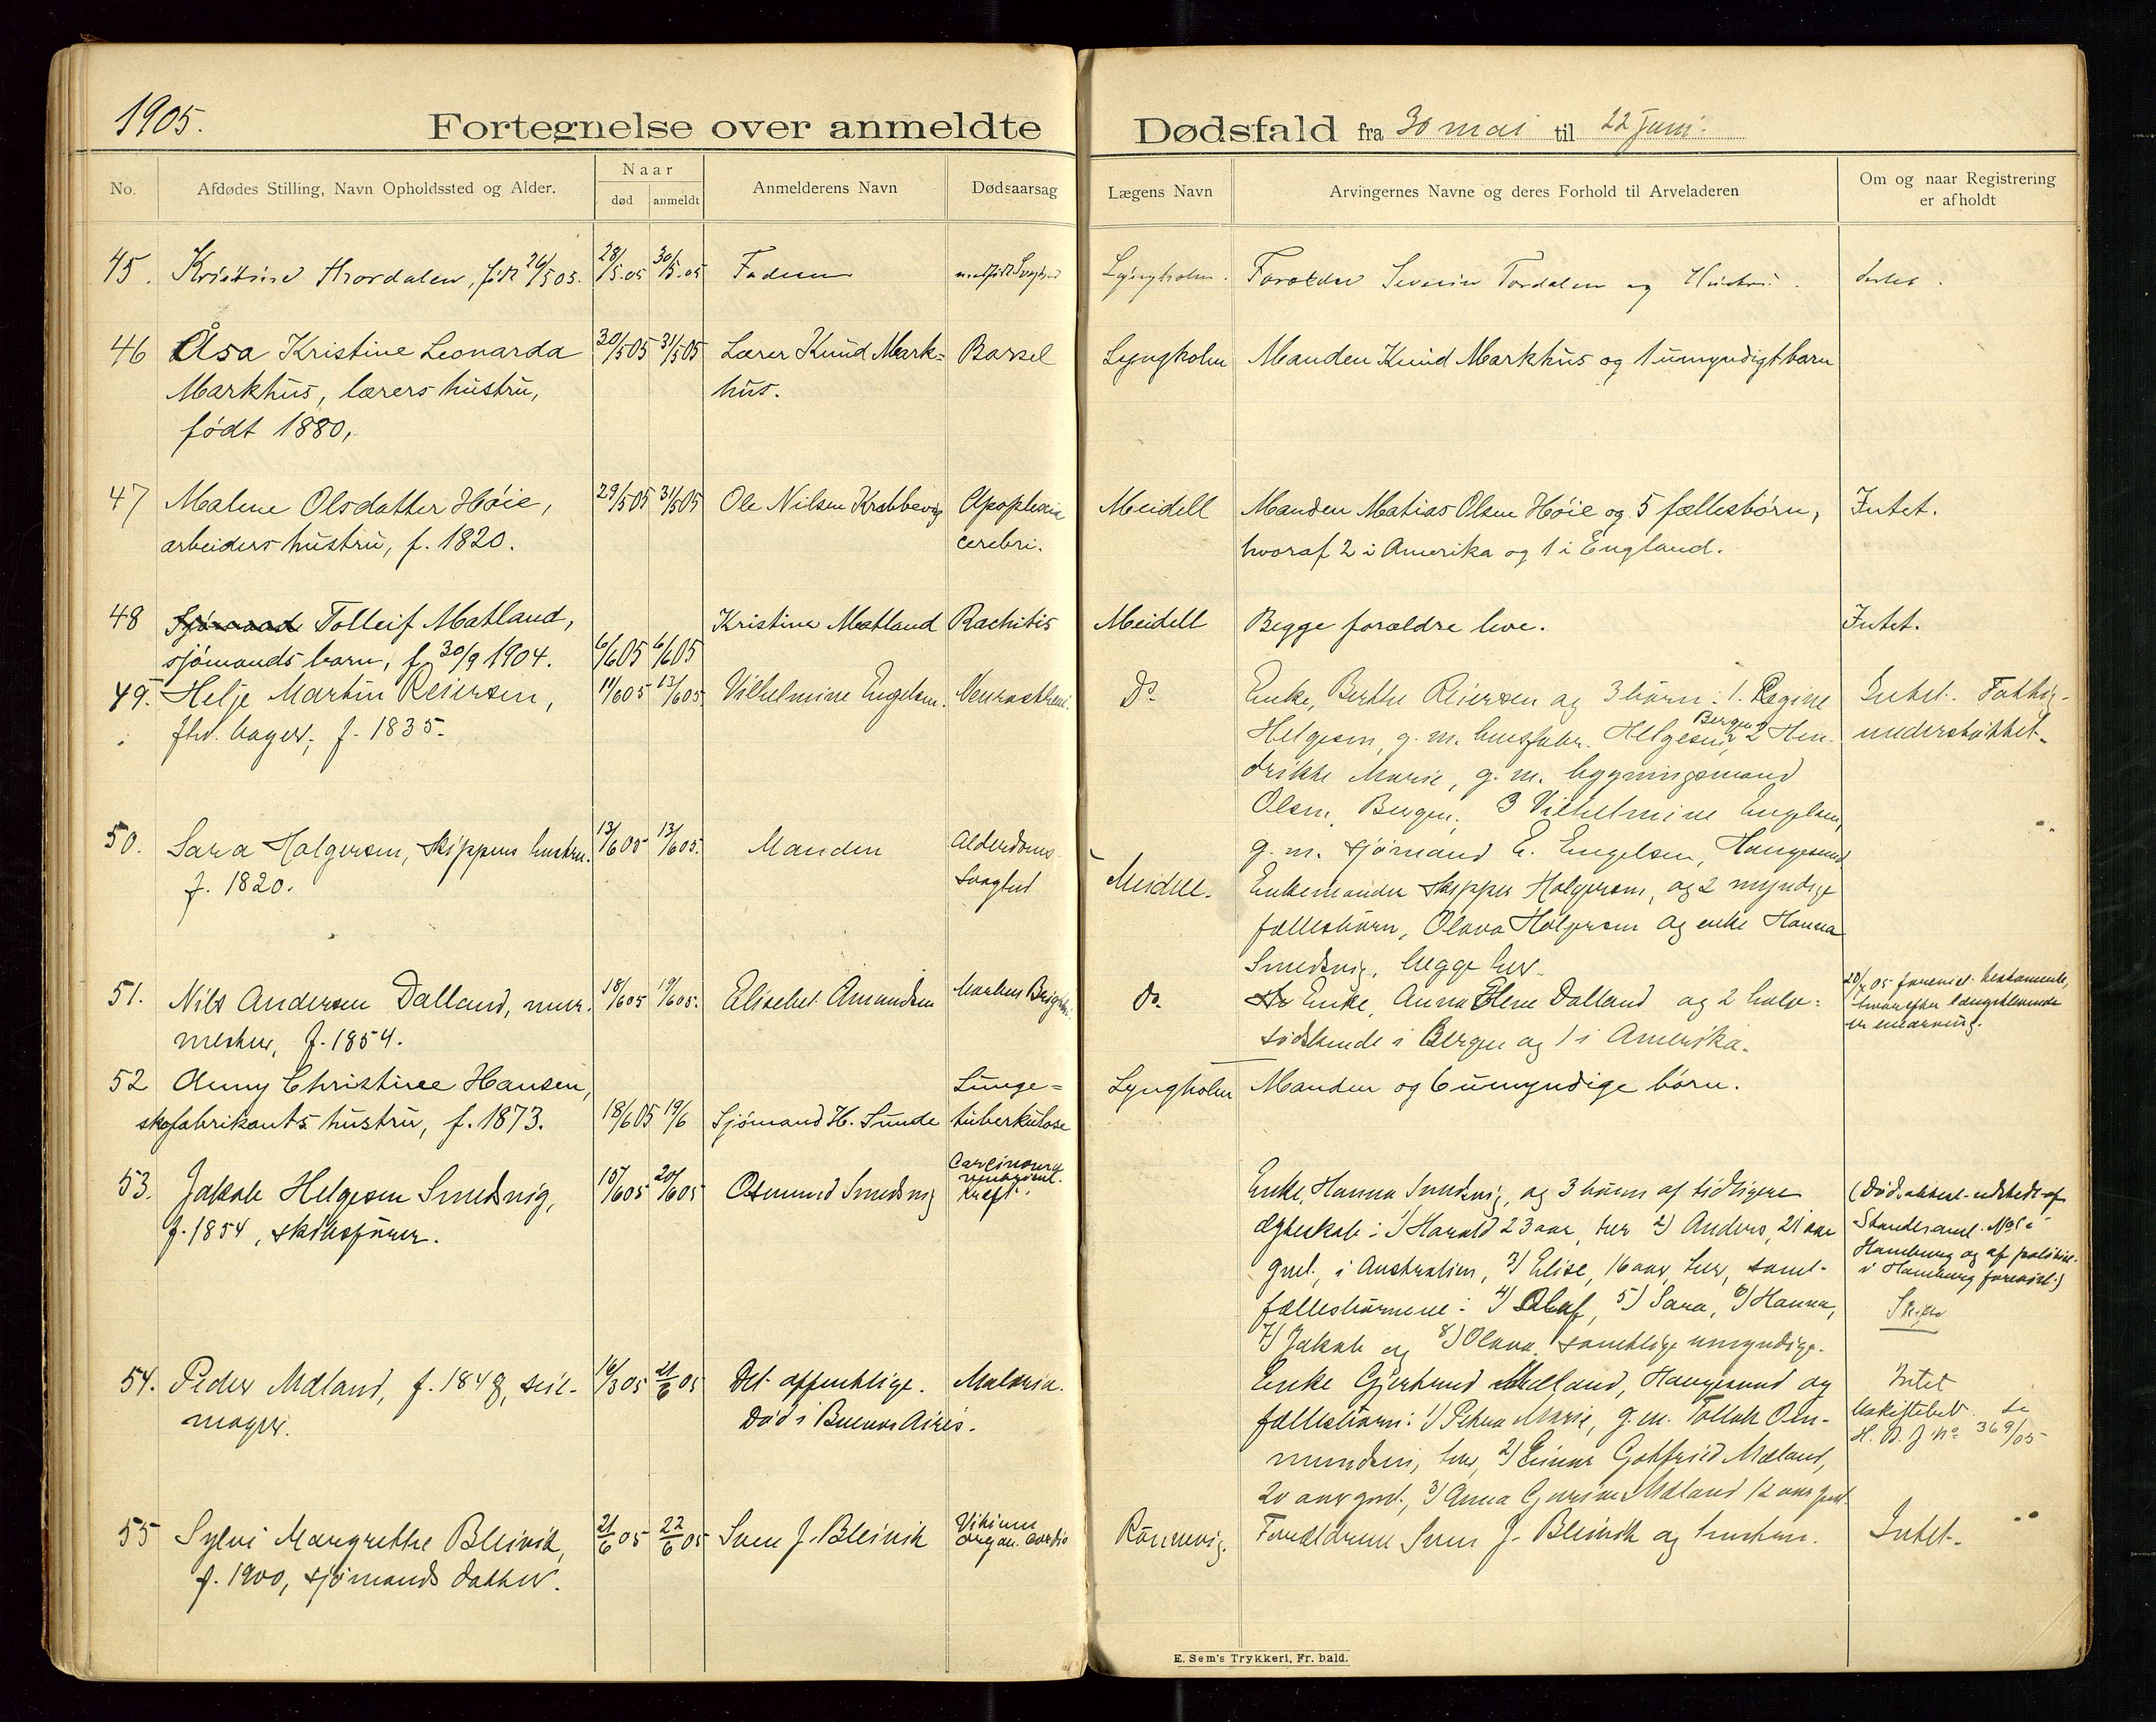 1905.
Fortegnelse over anmeldte Dødsfald fra 30 mai til 22 Juni.
No.
Afdødes Stilling, Navn Opholdssted og Alder.
Naar
død
anmeldt
Anmelderens Navn
Dødsaarsag
Lægens Navn
Arvingernes Navne og deres Forhold til Arveladeren
Om og naar Registrering
er afholdt
45. Kristine Thordalen, født 26/5 05. 28/5.05 30/5.05 Faderen medfødt Svaghed Lyngholm. Forældre Severin Tordalen og Hustru. Intet.
46 Åsa Kristine Leonarda 30/5 05 31/5 05 Lærer Knud Mark= Barsel Lyngholm Manden Knud Markhus og 1 umyndigt barn
Markhus, lærers hustru, hus.
født 1880,
47 Malene Olsdatter Høie, 29/5 05 31/5 05 Ole Nilsen Krabbevig Apoplexia Meidell Manden Matias Olsen Høie og 5 fællesbørn, Intet.
arbeiders hustru, f. 1820. cerebri. hvoraf 2 i Amerika og 1 i England.
48 Sjømand Tolleif Matland, Kristine Matland Rachitis Meidell Begge forældre leve. Intet.
sjømands barn, f. 30/9 1904. 6/6 05 6/6 05
49. Helje Martin Reiersen, 11/6 05 13/6 05. Vilhelmine Engelsen. Neurastheni. Do Enke, Berthe Reiersen og 3 børn: 1. Regine Intet. Fattig-
fhv. bager, f. 1835. Helgesen, g. m. Helgesen, Bergen, 2 Hen- understøttet.
drikke Marie, g. m. bygningsmand
Olsen, Bergen, 3 Vilhelmine Engelsen,
g. m. sjømand E. Engelsen, Haugesund
50. Sara Holgersen, skippers hustru. 13/6 05 13/6 05. Manden Alderdoms
f. 1820. Svaghed
Meidell. Enkemanden skipper Holgersen, og 2 myndige
fællesbørn, Olava Holgersen og enke Hanna
Smedsvig, begge her.
51. Nils Andersen Dalland, mur- 18/6 05 19/6 05. Elisabet Amundsen Morbus Brightii. Do Enke, Anna Elene Dalland og 2 halv- 20/ 05 forevist testamente,
mester, f. 1854. sødskende i Bergen og 1 i Amerika. hvorefter længstlevende
er enearving.
52 Anny Christine Hansen, Lunge= Lyngholm Manden og 6 umyndige børn.
skofabrikants hustru, f. 1873. 18/6 05 19/6 Sjømand H. Sunde tuberkulose
53. Jakob Helgesen Smedsvig, 15/6 05 20/6 05 Osmund Smedsvig Carcinoma
f. 1854, skibsfører. Kræft. Enke, Hanna Smedsvig, og 3 børn af tidligere (Dødsattest udstedt af
ægteskab: 1) Harald 23 aar, her 2) Anders, 21 aar Standesamt No 1 i
gml., i Australien, 3) Elise, 16 aar, her, samt Hamburg og af politiet
fællesbørnene: 4) Olaf, 5) Sara, 6) Hanna, i Hamburg forevist.)
7) Jakob og 8) Olava, samtlige umyndige. Skifte
54. Peder Mæland, f. 1848, seil- 16/3 05 21/6 05 Det offentlige. Malaria. Enke Gjertrud Mæland, Haugesund og Intet
mager. Død i Buenos Aires. fællesbørn: 1) Petra Marie, g. m. Tollak Om- Uskiftebo. se
mundsen, her, 2) Einar Gotfried Mæland, H. B. J No 369/05
20 aar gml., 3) Anna Gurine Mæland 12 aar gml.
55 Sylvi Margrethe Bleivik, 21/6 05 22/6 05 Sven J. Bleivik Vitium Rönnevig. Forældrene Sven J. Bleivik og hustru. Intet.
f. 1900, sjømands datter. organ. cordis
E. Sem's Trykkeri, Fr. hald.